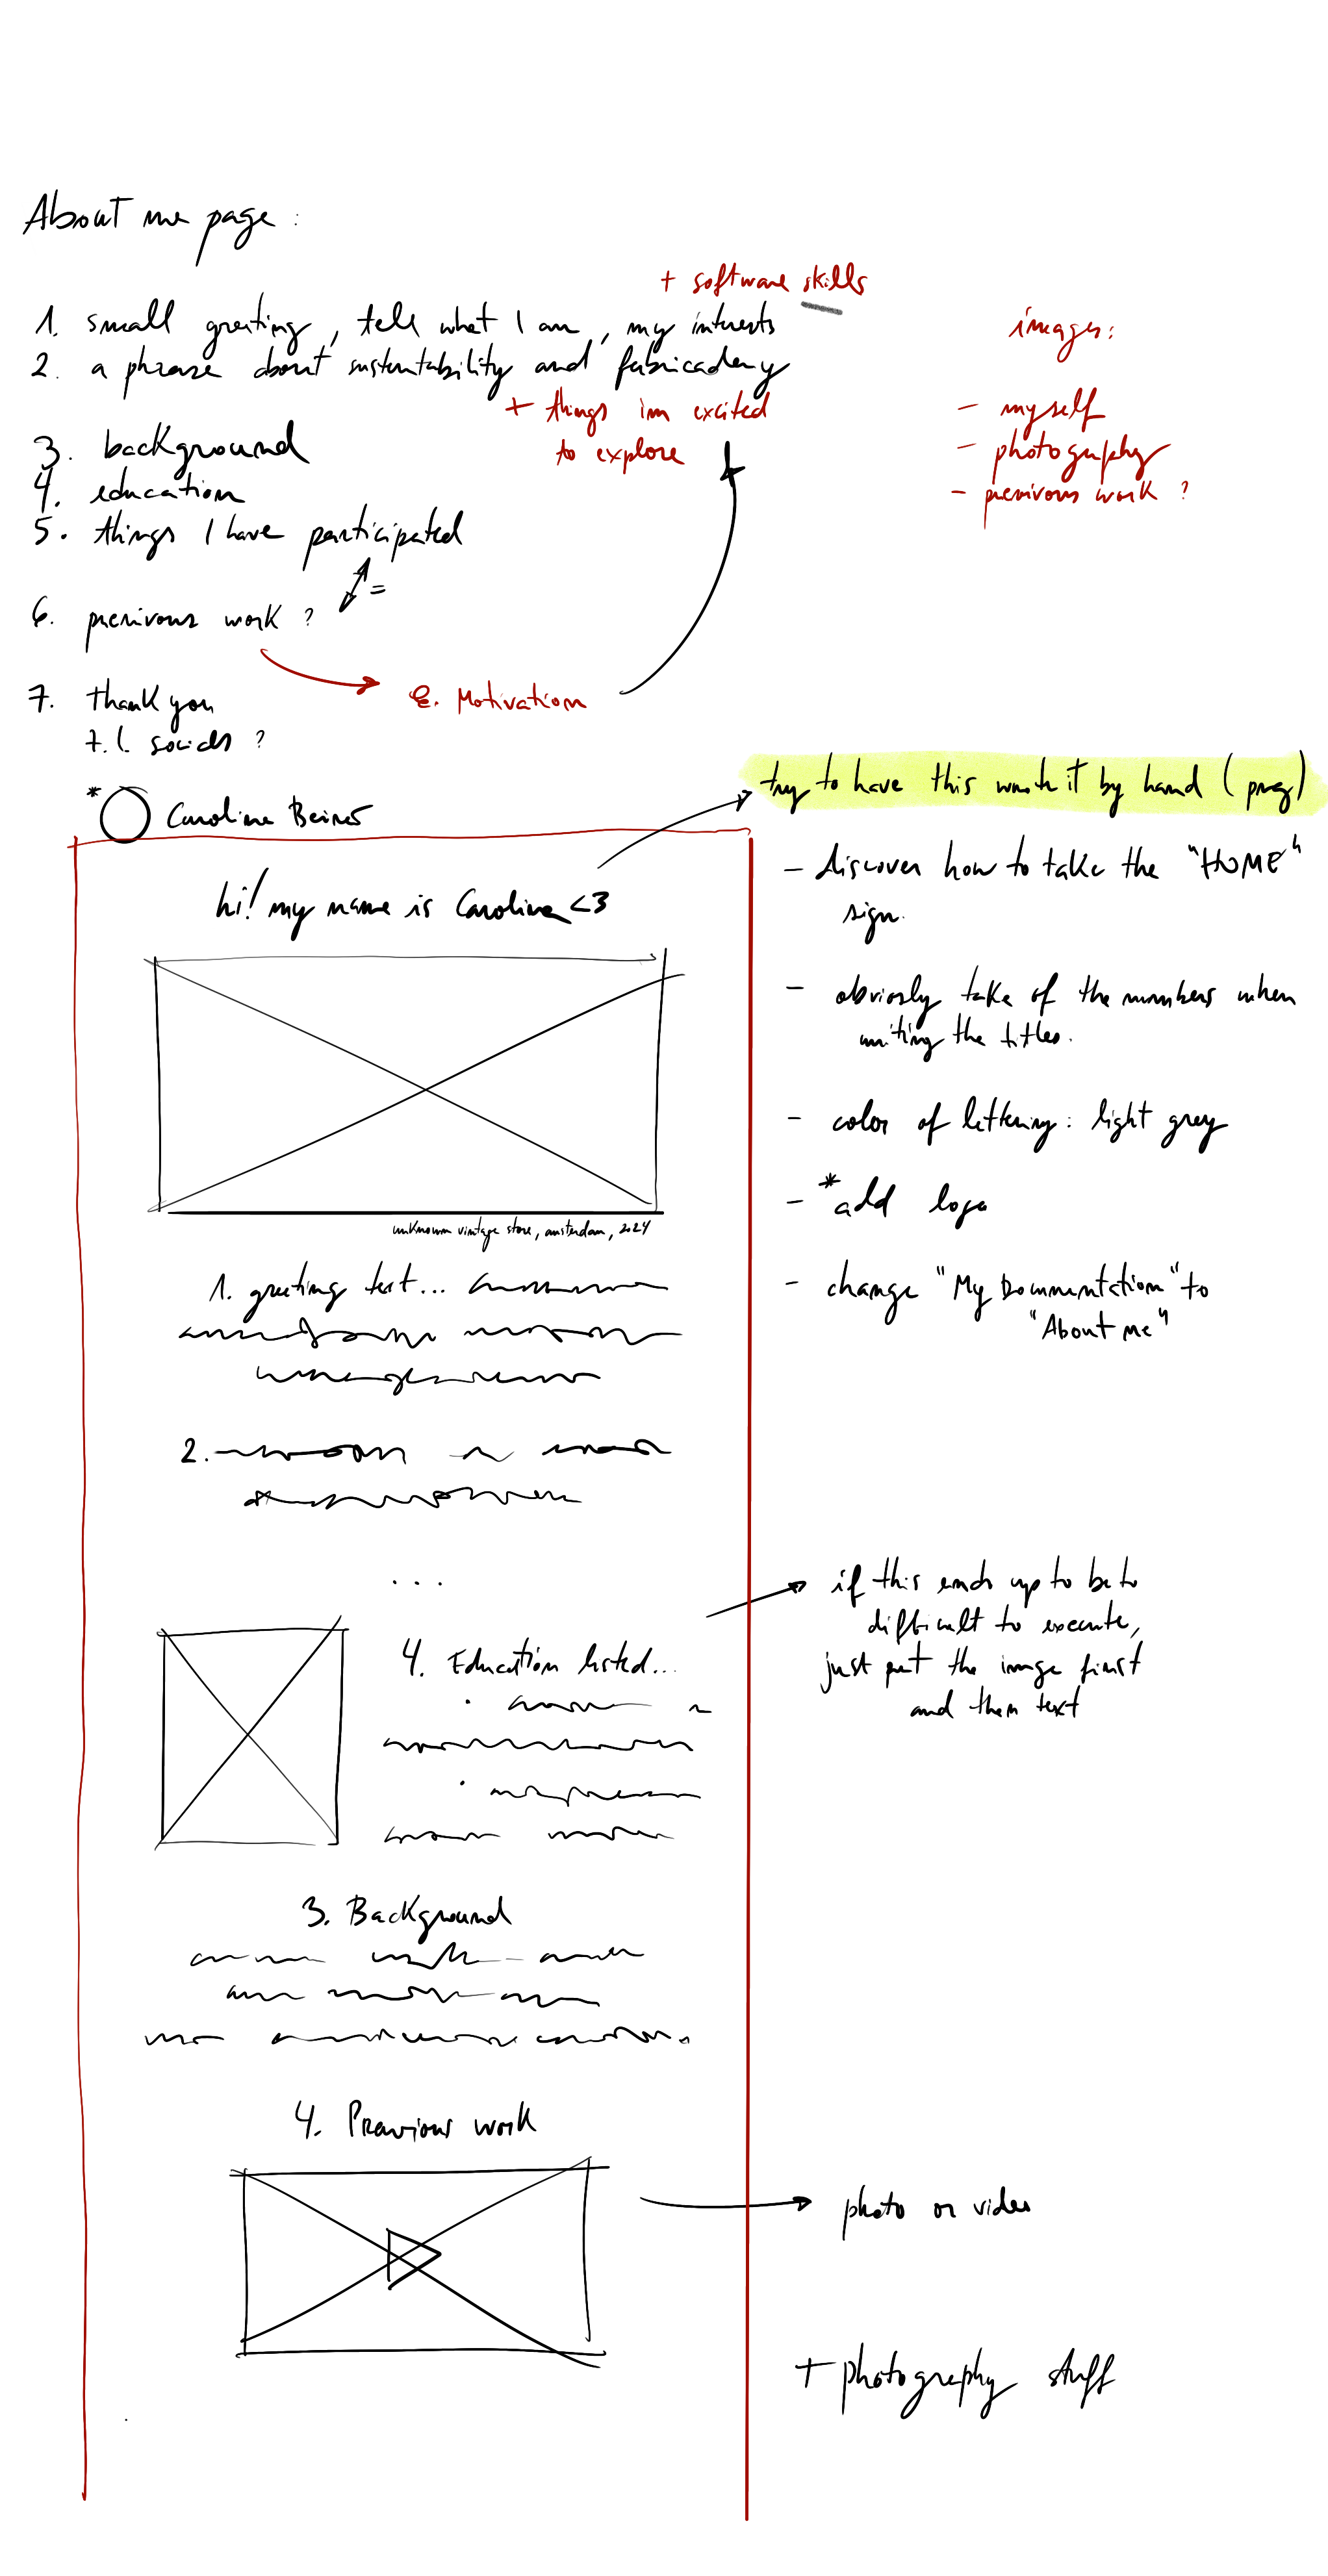 About me page :
+ software skills
1. small greeting, tell what I am, my interests
2. a phrase about sustentability and fabricademy
+ things im excited
to explore
3. background
4. education
5. things I have participated
=
6. previous work ?
2. Motivation
7. thank you
7.1. socials ?
images:
- myself
- photography
- previous work ?
* Carolina Beirão
try to have this write it by hand (png)
hi! my name is Carolina <3
- discover how to take the "HOME"
sign.
- obviosly take of the numbers when
writing the titles.
- color of lettering: light grey
- *add logo
- change "My Documentation" to
"About me"
unknown vintage store, amsterdam, 2024
1. greeting text...
2.
...
4. Education listed...
if this ends up to be to
difficult to execute,
just put the image first
and then text
3. Background
4. Previous work
photo or video
+ photography stuff